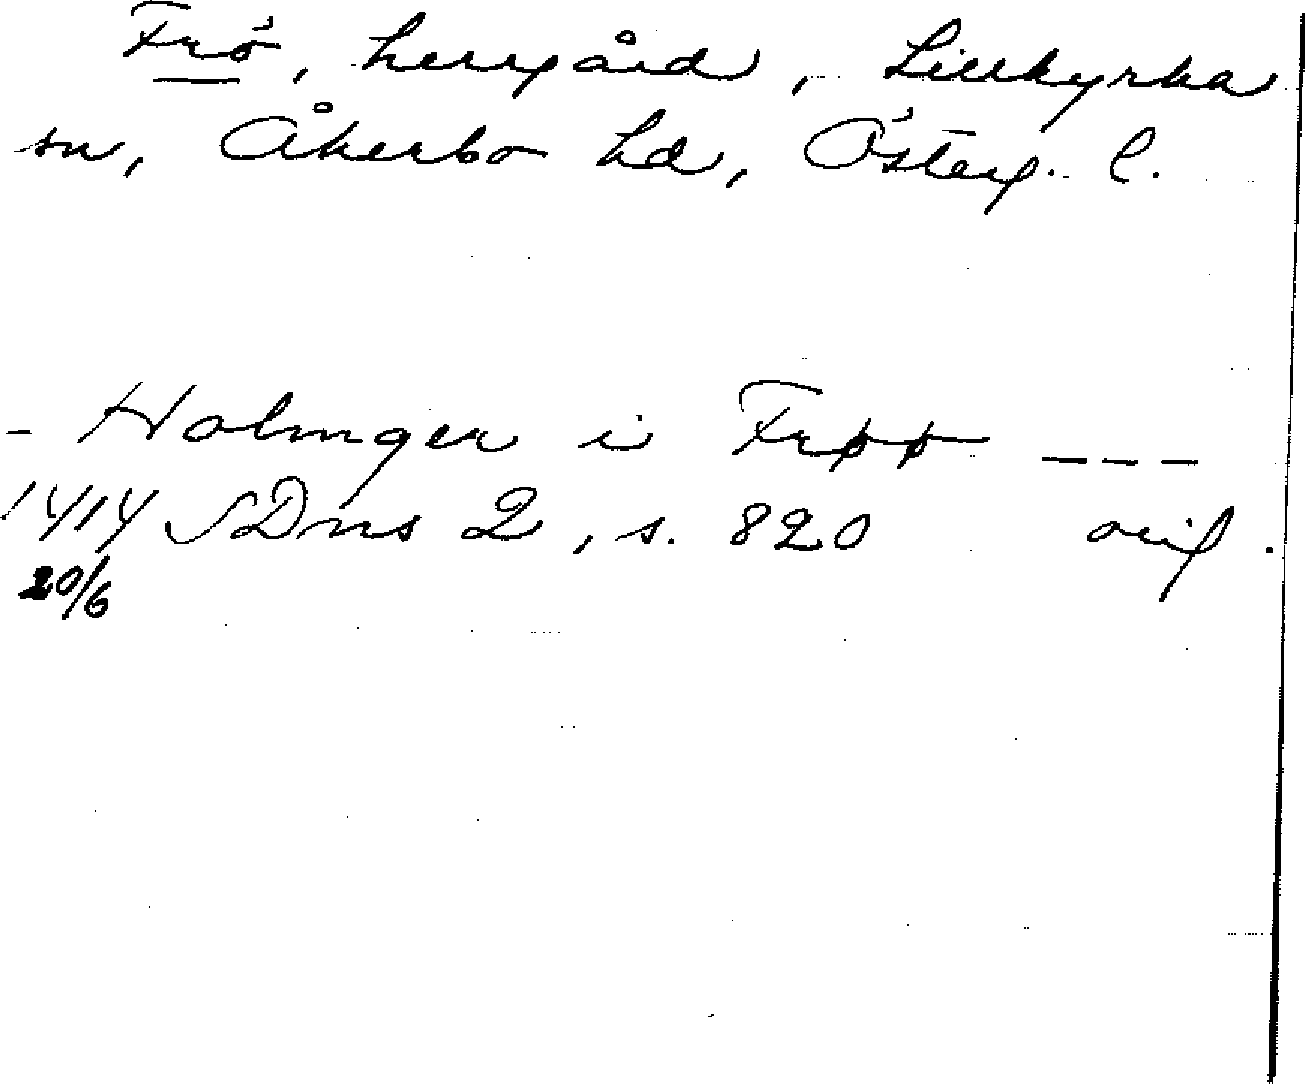 Frö, herrgård, Lillkyrka
sn, Åkerbo hd, Österg. l.
- Holmger i Frøø ---
1414 SDns 2, s. 820 orig.
20/6